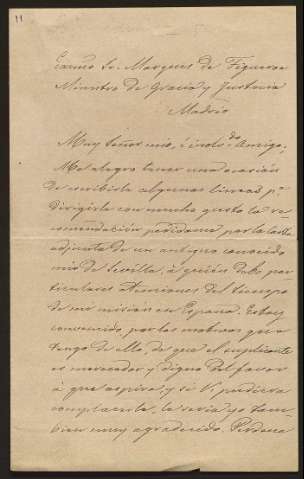 11
Excmo Sr. Marques de Figueroa
Ministro de Gracia y Justicia
Madrid
Muy Señor mio, é inolvdo Amigo,
Me alegro tener una ocasión
de escribirle algunas lineas pa
dirigirle con mucho gusto la re-
comendación pedidame por la carta
adjunta de un antiguo conocido
mio de Sevilla, à quien debo par-
ticulares atenciones del tiempo
de mi mision en España. Estoy
convencido, por los motivos que
tengo de ello, de que el suplicante
es merecedor y digno del favor
à que aspira, y si V. pudiera
complacerle, le seria yo tam-
bien muy agradecido. Perdone